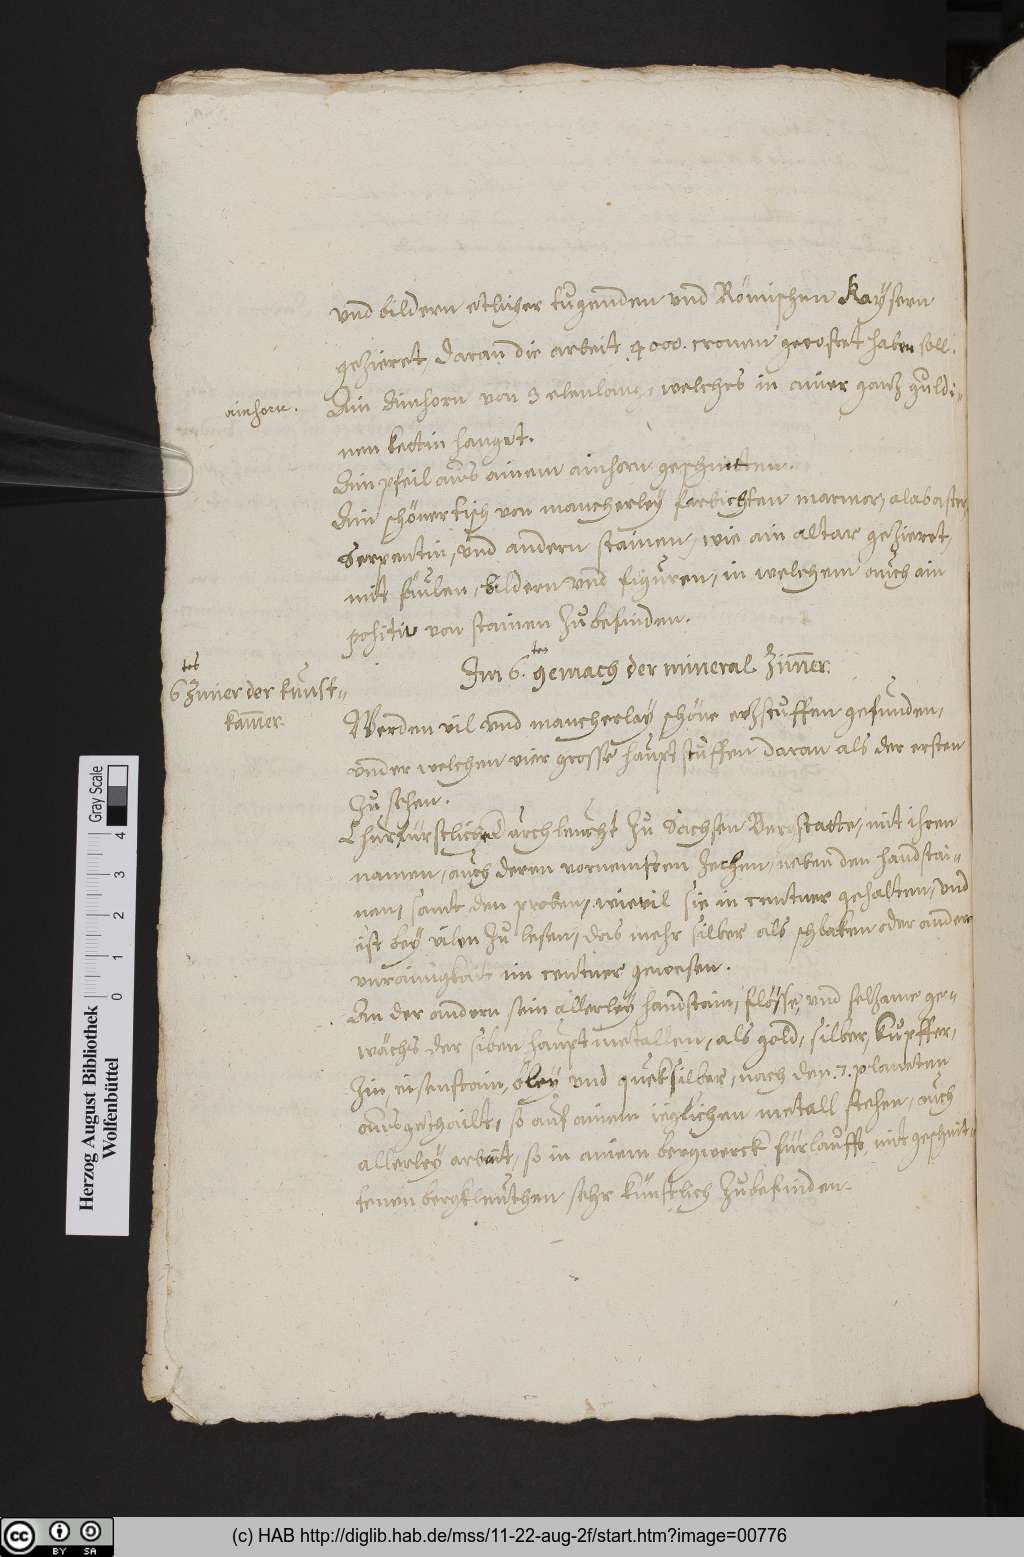 vnd bildern etlicher tugenden vnd Römischen Kaÿsern
gezieret, daran die arbeit 4000. cronen gecostet haben soll.
ainhorn.
Ain Ainhorn von 3 elenlang, welches in ainer ganz guldi=
nen kettin hanget.
Ain pfeil aus ainem ainhorn geschnitten.
Ain schöner tisch von mancherleÿ farbichten marmor, alabaster,
Serpentin, vnd andern stainen, wie ain altar gezieret,
mit säulen, bildern vnd figuren, in welchem auch ain
positiv von stainen zu befinden.
Im 6.tes gemach der mineral Zimer.
6tes Zimer der kunst=
kamer.
Werden vil vnd mancherlaÿ schöne erzstuffen gefunden,
vnder welchen vier grosse hauptstuffen daran als der ersten
zu sehen.
Churfürstlicher durchleucht zu Sachsen Bergstatte, mit ihren
namen, auch deren vornemsten Zechen, neben den handstai=
nen, samt den proben, wievil sie in centner gehalten, vnd
ist beÿ vilen zu lesen, das mehr silber als schlaken oder ander
vnrainigkait im centner gewesen.
An der andern sein allerleÿ handstain, flösse, vnd selzame ge=
wächs der siben hauptmetallen, als gold, silber, kupffer,
Zin, eisenstain, bleÿ vnd queksilber, nach den .7. planeten
ausgethailt, so auf ainem ieglichen metall stehen, auch
allerleÿ arbeit, so in ainem bergwerck fürlauffs, mit geschnit=
tenen bergkleuthen sehr künstlich zu befinden.
Gray Scale
0 1 2 3 4
Herzog August Bibliothek
Wolfenbüttel
cc BY SA
(c) HAB http://diglib.hab.de/mss/11-22-aug-2f/start.htm?image=00776